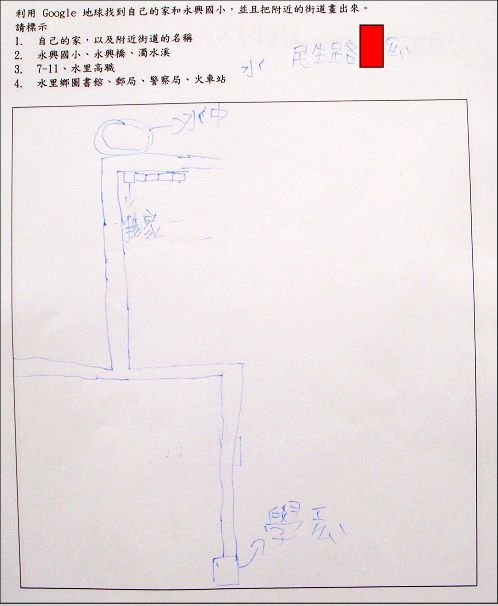 利用 Google 地球找到自己的家和永興國小，並且把附近的街道畫出來。
請標示
1. 自己的家，以及附近街道的名稱
2. 永興國小、永興橋、濁水溪
3. 7-11、水里高職
4. 水里鄉圖書館、郵局、警察局、火車站
水 民生路
水中
我家
學